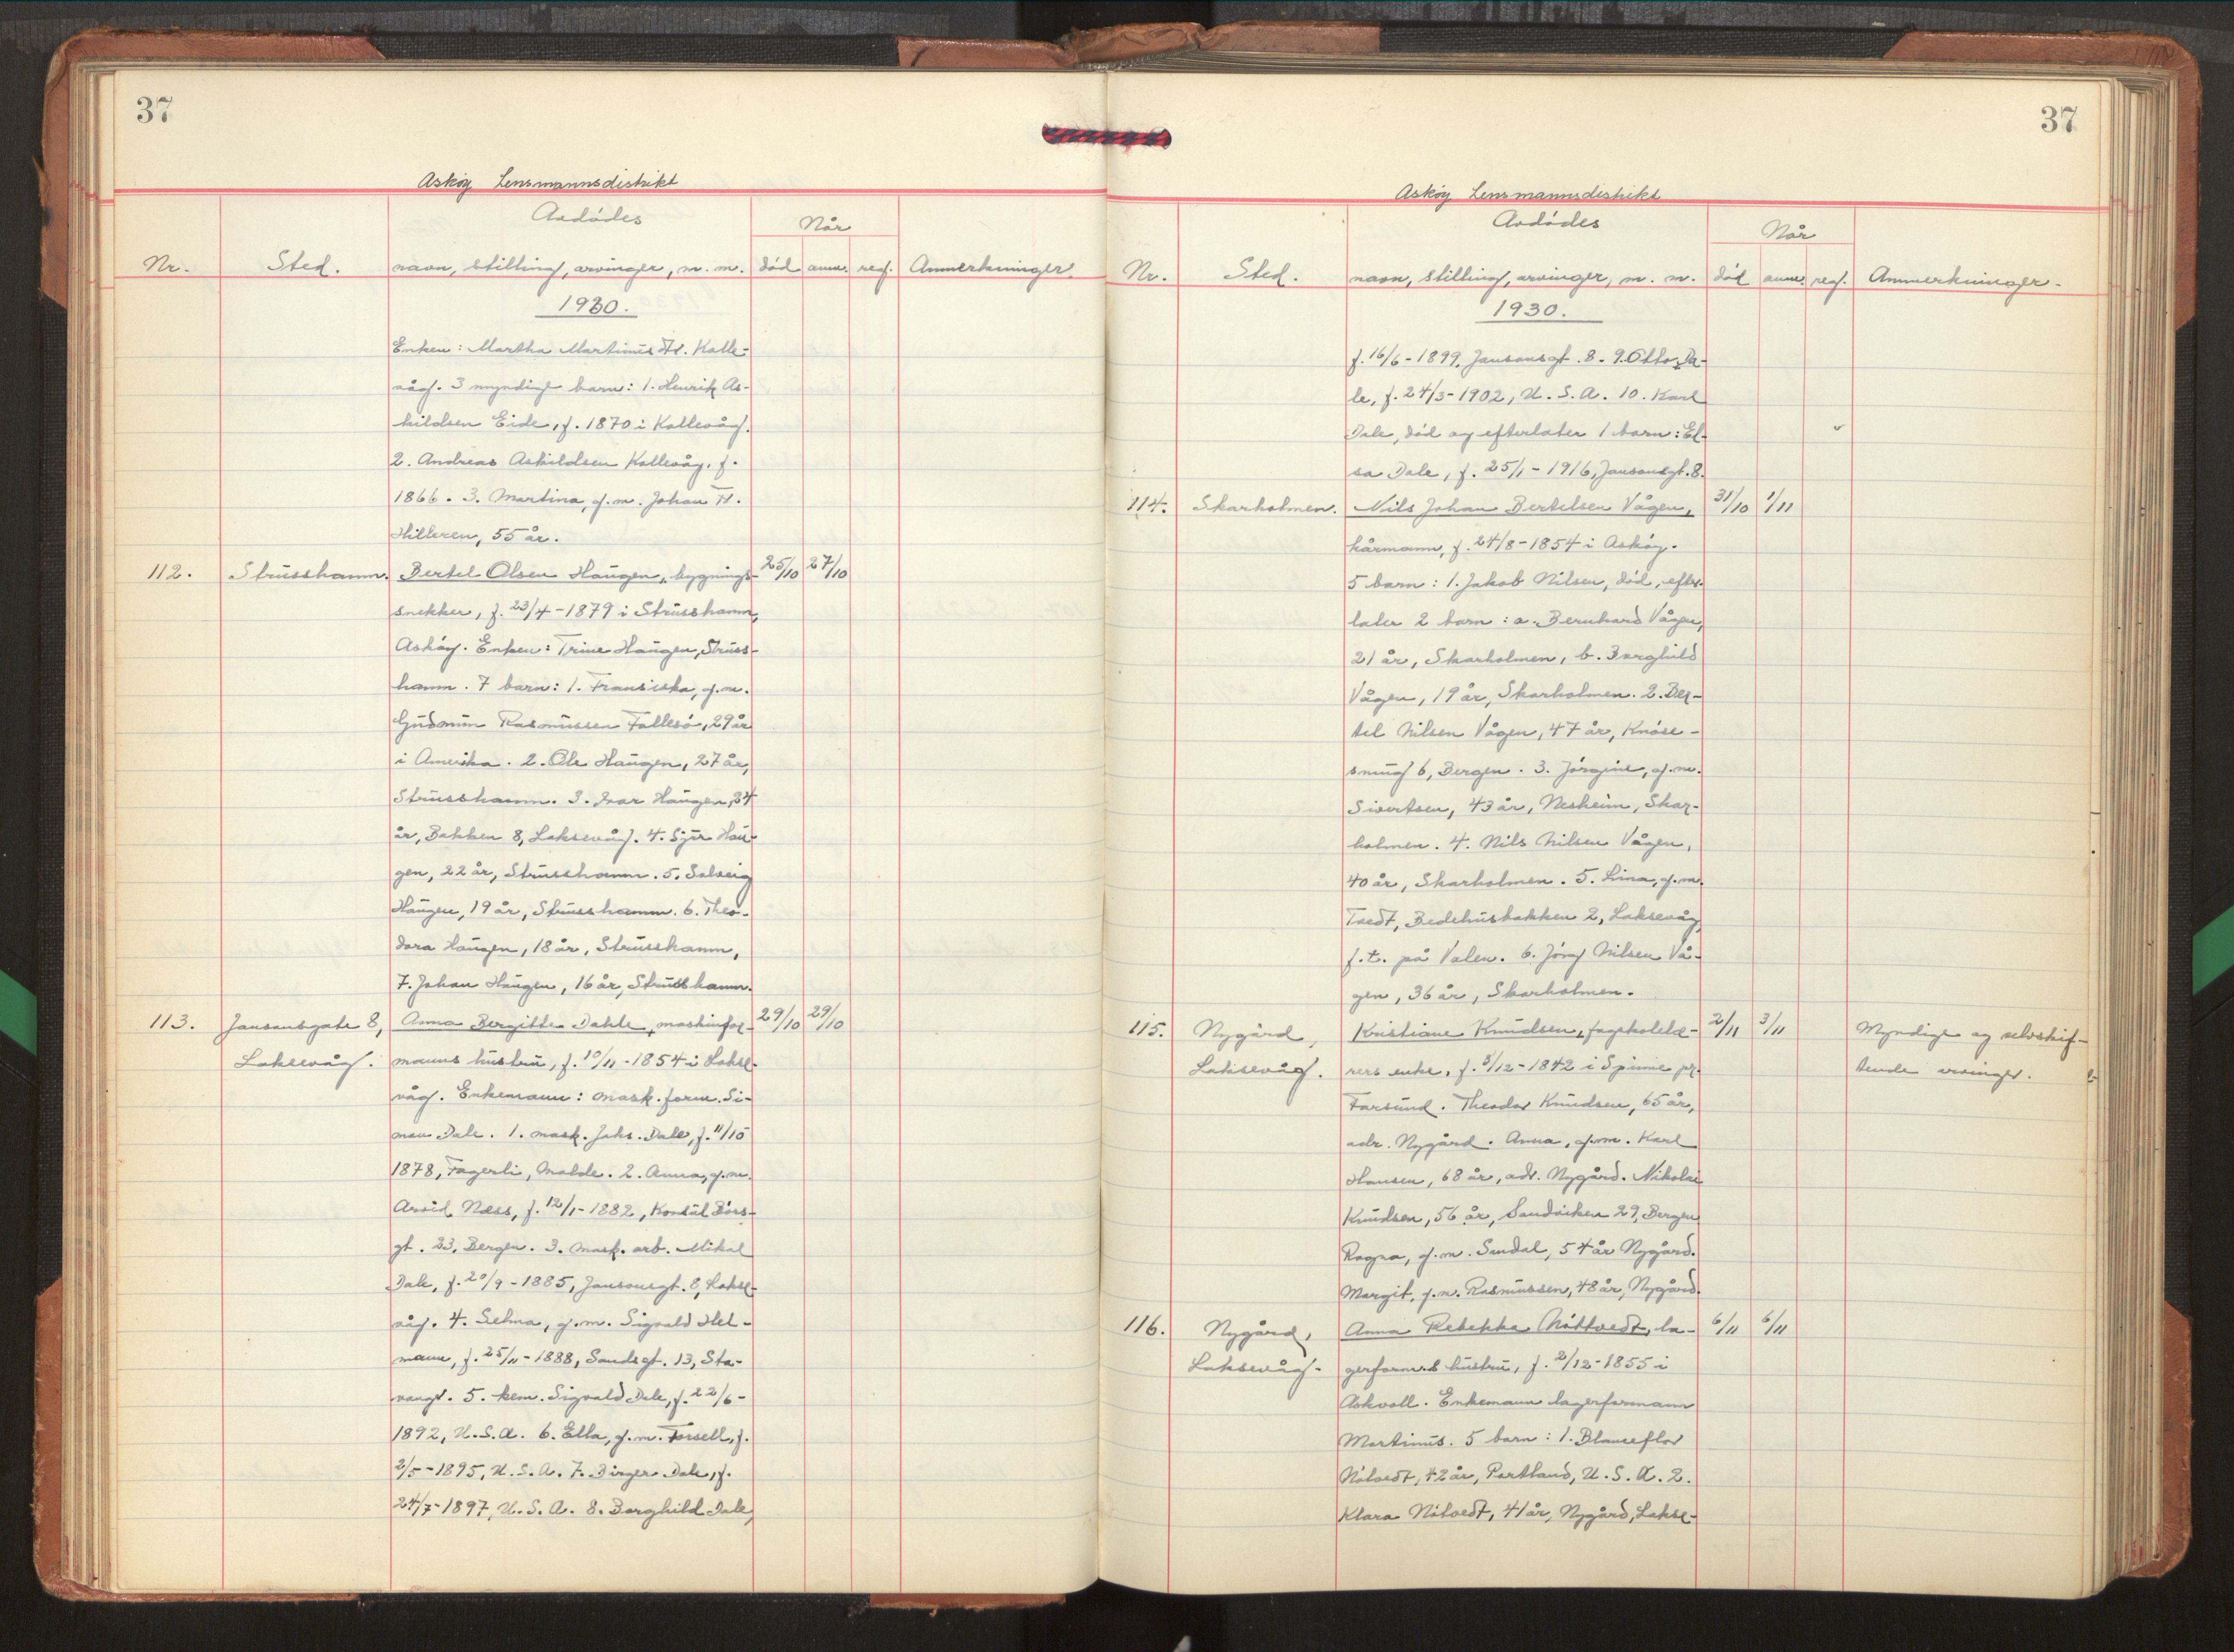 37
Askøy Lensmannsdistrikt
Avdødes
Når
Nr.
Sted.
navn, stilling, arvinger, m. m.
død
anm.
reg.
Anmerkninger.
1930.
Enken: Martha Martinus Dt. Kolle-
våg. 3 myndige barn: 1. Henrik As-
kildsen Eide, f. 1870 i Kollevåg.
2. Andreas Askildsen Kollevåg, f.
1866. 3. Martina, g. m. Johan
Hilleren, 55 år.
112. Strusshamn. Bertel Olsen Haugen, bygnings- 25/10 27/10
snekker, f. 23/4-1879 i Strusshamn,
Askøy. Enken: Trine Haugen, Struss-
hamn. 7 barn: 1. Fransiska, g. m.
Gudmun Rasmussen Follesø, 29 år
i Amerika. 2. Ole Haugen, 27 år,
Strusshamn. 3. Ivar Haugen, 24
år, Bakken 8, Laksevåg. 4. Sjur Hau-
gen, 22 år, Strusshamn. 5. Solveig
Haugen, 19 år, Strusshamn. 6. Theo-
dora Haugen, 18 år, Strusshamn,
7. Johan Haugen, 16 år, Strusshamn.
113. Jansonsgate 8, Anna Bergitte Dahle, maskinfor- 29/10 29/10
Laksevåg. manns hustru, f. 10/11-1854 i Lakse-
våg. Enkemann: mask. form. Si-
mon Dale. 1. mask. Johs. Dale, f. 11/10
1878, Fagerli, Molde. 2. Anna, g. m.
Arvid Næss, f. 12/1-1882, Konsul Børs-
gt. 23, Bergen. 3. mask. arb. Mikal
Dale, f. 20/9-1885, Jansonsgt. 8, Lakse-
våg. 4. Selma, g. m. Sigvald Hel-
mann, f. 25/11-1888, Sandsgt. 13, Sta-
vanger. 5. kem. Sigvald Dale, f. 22/6-
1892, U. S. A. 6. Ella, g. m. Forsell, f.
2/5-1895, U. S. A. 7. Birger Dale, f.
24/7-1897, U. S. A. 8. Borghild Dale,
37
Askøy Lensmannsdistrikt
Avdødes
Når
Nr.
Sted.
navn, stilling, arvinger, m. m.
død
anm.
reg.
Anmerkninger.
1930.
f. 16/6-1899, Jansonsgt. 8. 9. Otto Da-
le, f. 24/3-1902, U. S. A. 10. Karl
Dale, død og efterlater 1 barn: El-
sa Dale, f. 25/1-1916, Jansonsgt. 8.
114. Skarholmen. Nils Johan Bertelsen Vågen, 31/10 1/11
kårmann, f. 24/8-1854 i Askøy.
5 barn: 1. Jakob Nilsen, død, efter-
later 2 barn: a. Bernhard Vågen,
21 år, Skarholmen, b. Borghild
Vågen, 19 år, Skarholmen. 2. Ber-
tel Nilsen Vågen, 47 år, Knøse-
smug 6, Bergen. 3. Jørgine, g. m.
Sivertsen, 43 år, Nesheim, Skar-
holmen. 4. Nils Nilsen Vågen,
40 år, Skarholmen. 5. Lina, g. m.
Tvedt, Bedehusbakken 2, Laksevåg,
f. t. på Valen. 6. Jørg Nilsen Vå-
gen, 36 år, Skarholmen.
115. Nygård, Kristiane Knudsen, fagskolelæ- 2/11 3/11 Myndige og selvskif-
Laksevåg. rers enke, f. 3/12-1842 i Spinne pr. tende arvinger.
Farsund. Theodor Knudsen, 65 år,
adr. Nygård. Anna, g. m. Karl
Hansen, 68 år, adr. Nygård. Nikolai
Knudsen, 56 år, Sandviken 29, Bergen
Ragna, g. m. Sundal, 54 år Nygård.
Margit, g. m. Rasmussen, 48 år, Nygård.
116. Nygård, Anna Rebekka Nøttvedt, la- 6/11 6/11
Laksevåg. gerformds hustru, f. 2/12-1855 i
Askvoll. Enkemann lagerformann
Martinus. 5 barn: 1. Blanceflor
Nøtvedt, 42 år, Portland, U. S. A. 2.
Klara Nøtvedt, 41 år, Nygård, Lakse-